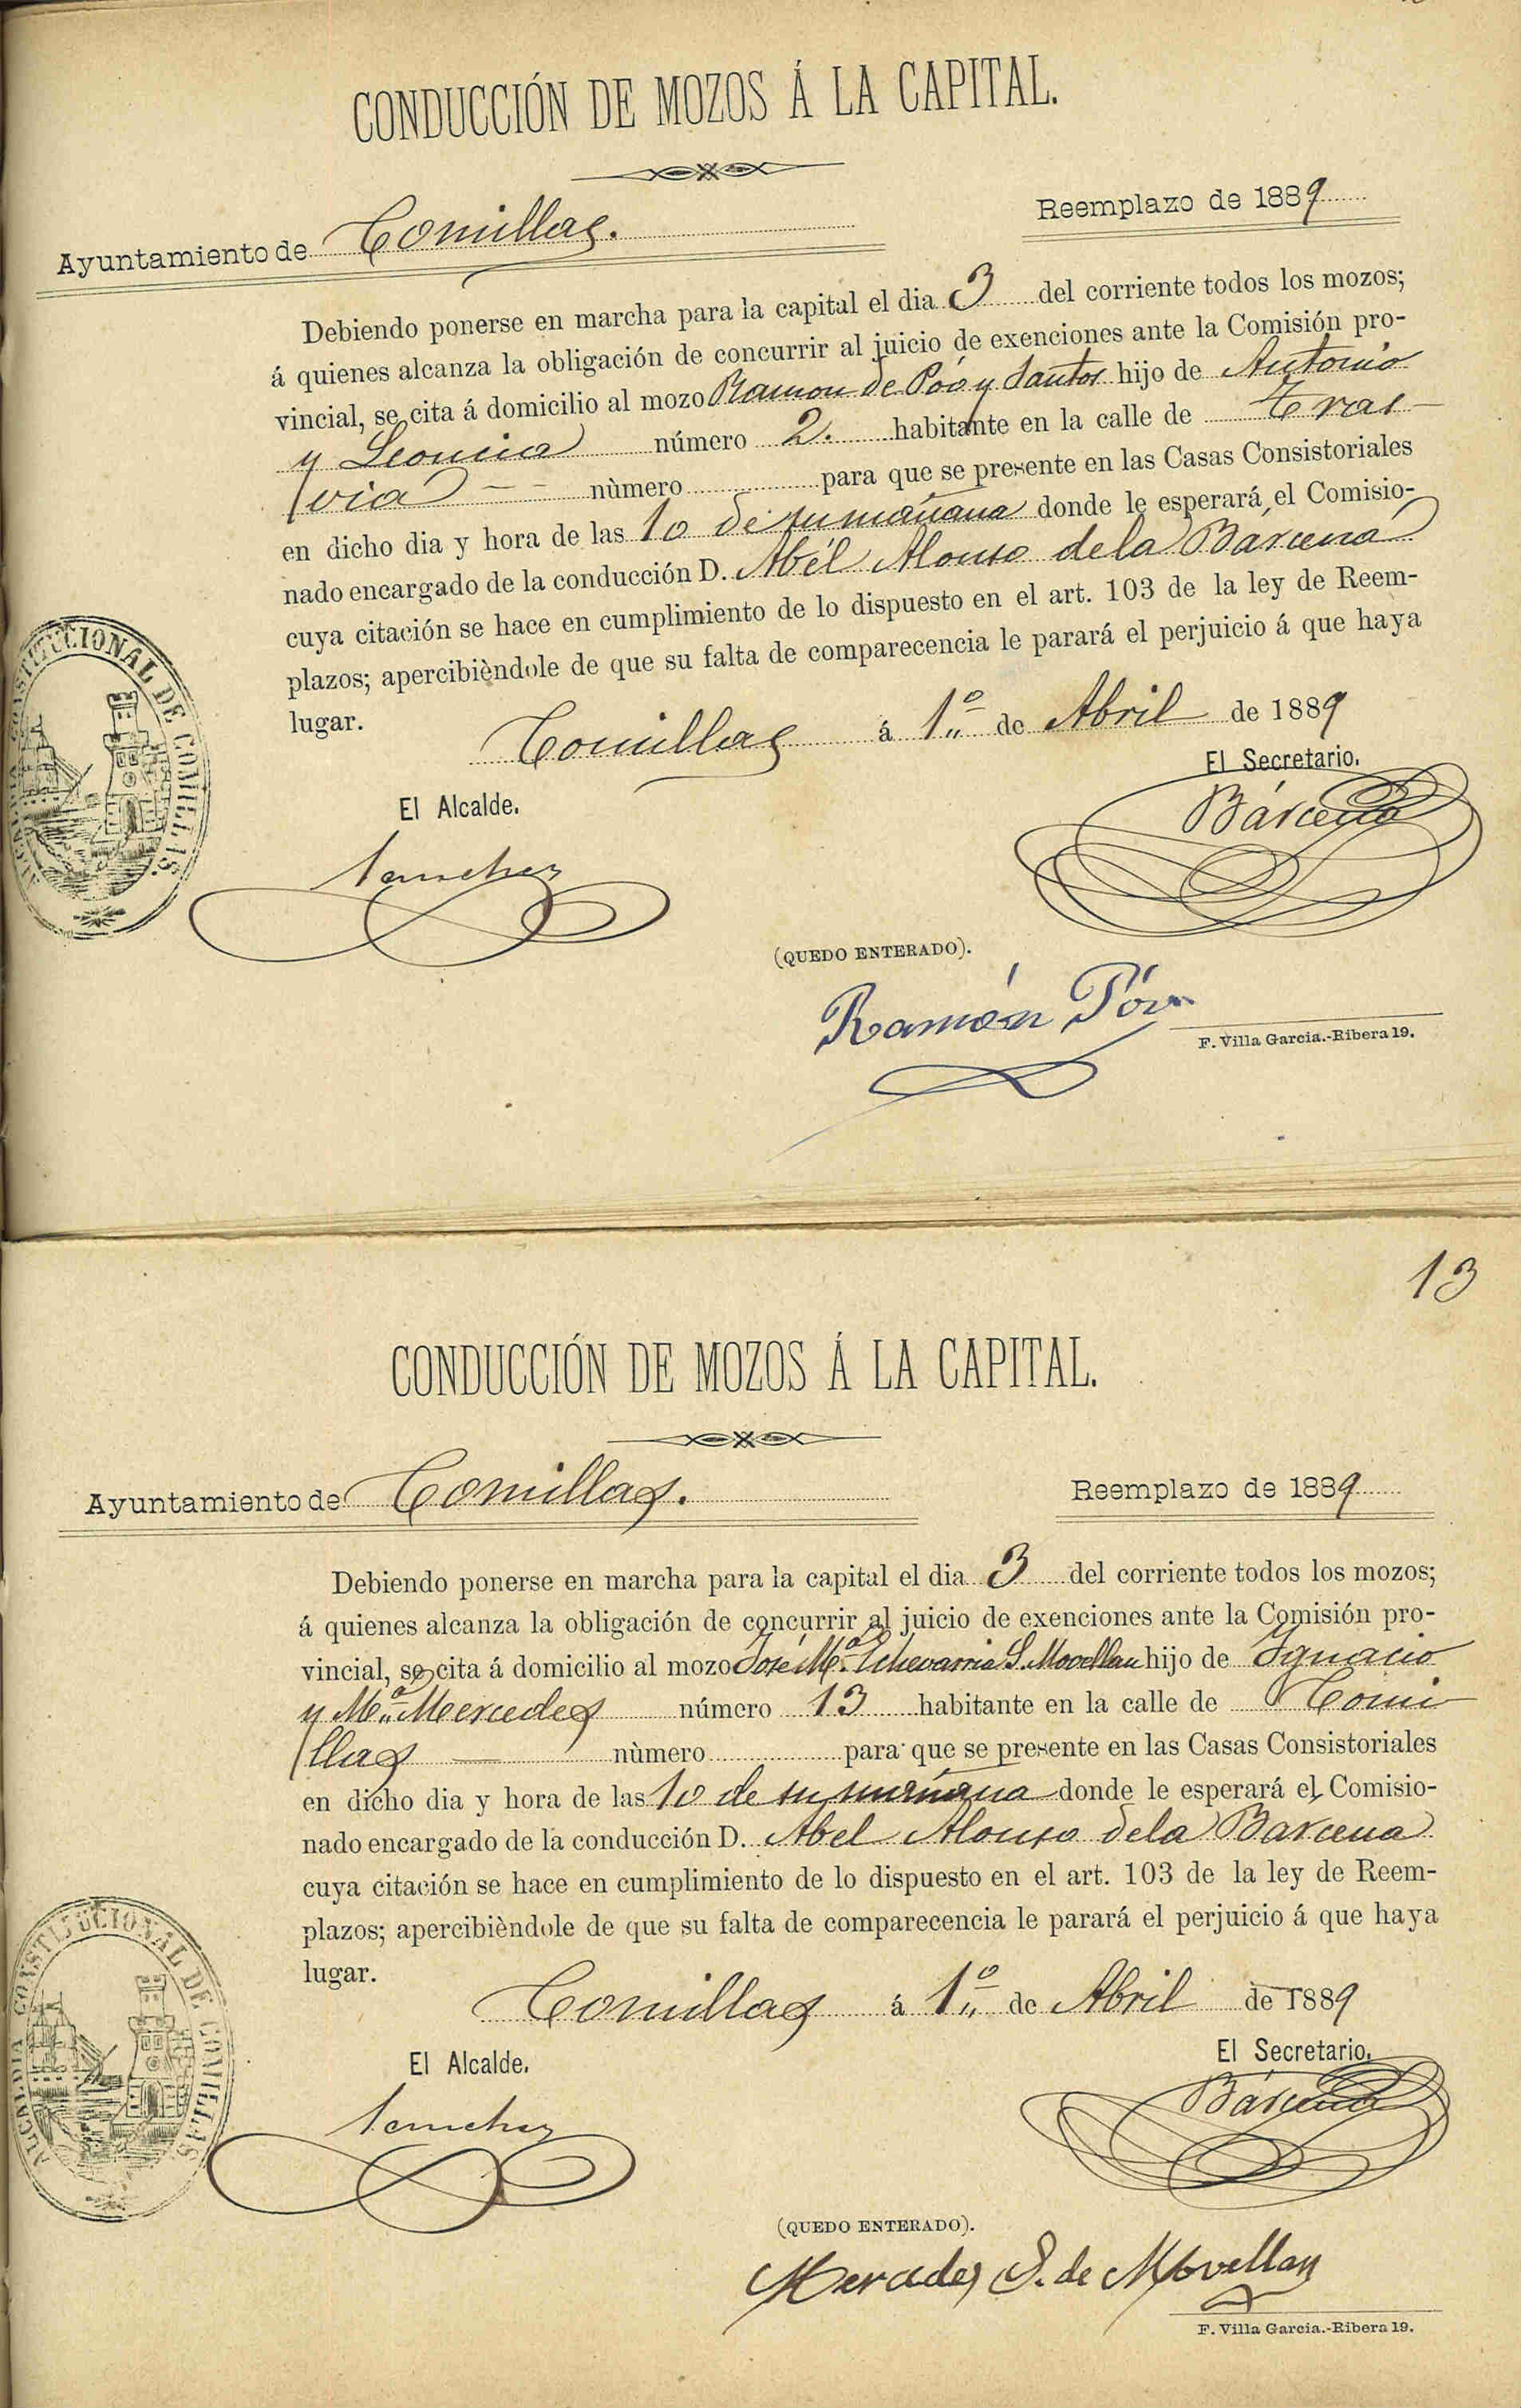 CONDUCCIÓN DE MOZOS Á LA CAPITAL.
Ayuntamiento de Comillas. Reemplazo de 1889
Debiendo ponerse en marcha para la capital el dia 3 del corriente todos los mozos;
á quienes alcanza la obligación de concurrir al juicio de exenciones ante la Comisión pro-
vincial, se cita á domicilio al mozo Ramon de Póo y Santos hijo de Antonio
y Leoncia número 2. habitante en la calle de Tras
via nùmero para que se presente en las Casas Consistoriales
en dicho dia y hora de las 10 de su mañana donde le esperará el Comisio-
nado encargado de la conducción D. Abél Alonso de la Bárcena
cuya citación se hace en cumplimiento de lo dispuesto en el art. 103 de la ley de Reem-
plazos; apercibièndole de que su falta de comparecencia le parará el perjuicio á que haya
lugar.
Comillas á 1º de Abril de 1889
El Secretario.
El Alcalde.
Bárcena
Sanchez
CONSTITUCIONAL DE COMILLAS.
(QUEDO ENTERADO).
Ramón Póo
F. Villa Garcia.-Ribera 19.
13
CONDUCCIÓN DE MOZOS Á LA CAPITAL.
Ayuntamiento de Comillas. Reemplazo de 1889
Debiendo ponerse en marcha para la capital el dia 3 del corriente todos los mozos;
á quienes alcanza la obligación de concurrir al juicio de exenciones ante la Comisión pro-
vincial, se cita á domicilio al mozo José Mª. Echevarria S. Movellan hijo de Ygnacio
y Mª. Mercedes número 13 habitante en la calle de Comi
llas nùmero para que se presente en las Casas Consistoriales
en dicho dia y hora de las 10 de su mañana donde le esperará el Comisio-
nado encargado de la conducción D. Abel Alonso de la Bárcena
cuya citación se hace en cumplimiento de lo dispuesto en el art. 103 de la ley de Reem-
plazos; apercibièndole de que su falta de comparecencia le parará el perjuicio á que haya
lugar.
Comillas á 1º de Abril de 1889
El Secretario.
El Alcalde.
Bárcena
Sanchez
ALCALDIA CONSTITUCIONAL DE COMILLAS
(QUEDO ENTERADO).
Mercedes S. de Movellan
F. Villa Garcia.-Ribera 19.